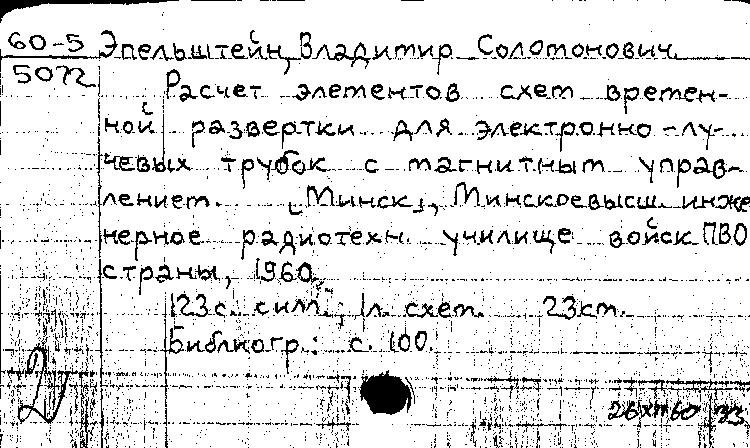 60-5 Эпельштейн, Владимир Соломонович.
5072
Расчет элементов схем времен-
ной развертки для электронно-лу-
чевых трубок с магнитным управ-
лением. [Минск], Минское высш. инже
нерное радиотехн. училище войск ПВО
страны, 1960.
123с. с илл.; 1л. схем. 23см.
Библиогр.: с. 100.
2